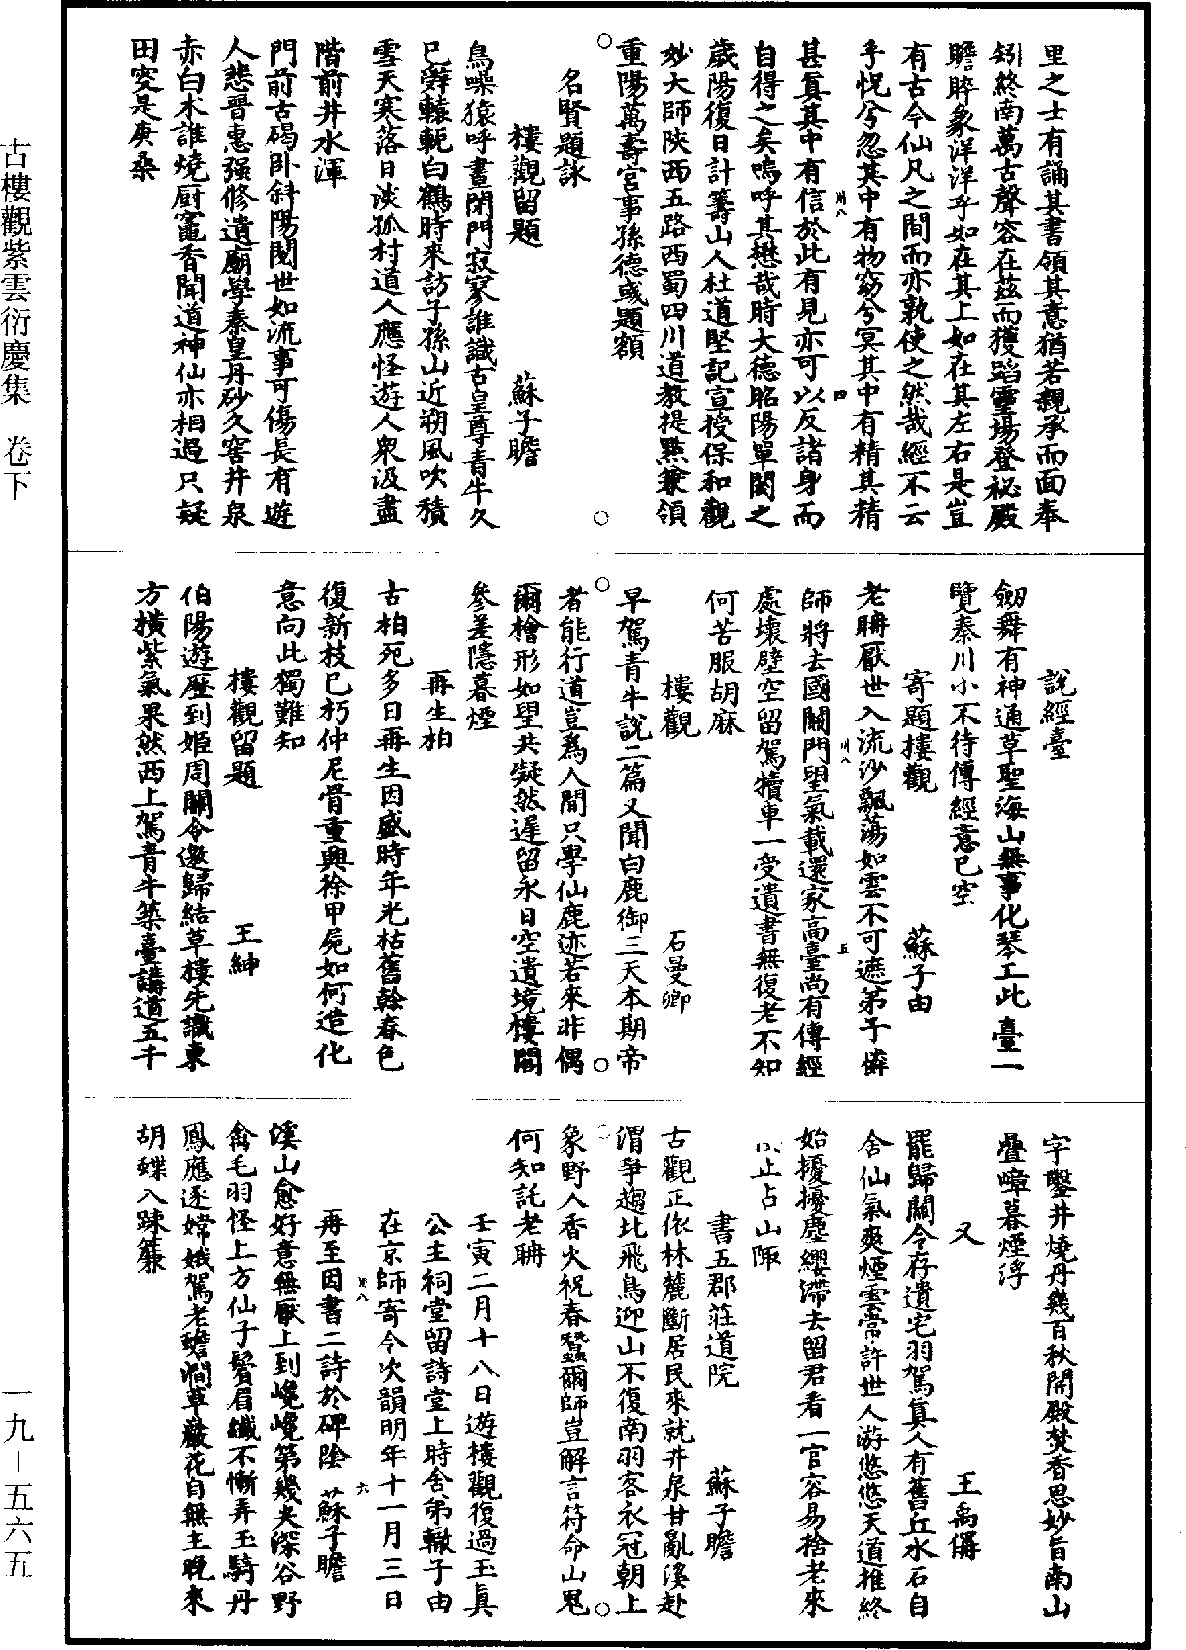 里之士有誦其書領其意猶若親承而面奉
矧終南萬古聲容在茲而獲蹈靈場登祕殿
瞻睟象洋洋乎如在其上如在其左右是豈
有古今仙凡之間而亦孰使之然哉經不云
乎怳兮忽其中有物窈兮冥其中有精其精
甚真其中有信於此有見亦可以反諸身而
自得之矣嗚呼其懋哉時大德昭陽單閼之
歲陽復日計籌山人杜道堅記宣授保和觀
妙大師陝西五路西蜀四川道教提點兼領
重陽萬壽宮事孫德彧題額
名賢題詠
樓觀留題 蘇子瞻
鳥噪猿呼晝閉門寂寥誰識古皇尊青牛久
已辭轅軛白鶴時來訪子孫山近朔風吹積
雪天寒落日淡孤村道人應怪遊人衆汲盡
階前井水渾
門前古碣卧斜陽閱世如流事可傷長有遊
人悲晉惠强修遺廟學秦皇丹砂久窖井泉
赤白朮誰燒厨竈香聞道神仙亦相過只疑
田叟是庚桑
說經臺
劒舞有神通草聖海山無事化琴工此臺一
覽秦川小不待傳經意已空
寄題樓觀 蘇子由
老聃厭世入流沙飄蕩如雲不可遮弟子憐
師將去國關門望氣載還家高臺尚有傳經
處壞壁空留駕犢車一受遺書無復老不知
何苦服胡麻
樓觀 石曼卿
早駕青牛說二篇又聞白鹿御三天本期帝
者能行道豈爲人間只學仙鹿迹若來非偶
爾檜形如望共凝然遲留永日空遺境樓閣
參差隱暮煙
再生柏
古柏死多日再生因盛時年光枯舊幹春色
復新枝已朽仲尼骨重興徐甲屍如何造化
意向此獨難知
樓觀留題 王紳
伯陽遊歷到姬周關令邀歸結草樓先識東
方横紫氣果然西上駕青牛築臺講道五千
字鑿井燒丹幾百秋開殿焚香思妙旨南山
疊嶂暮煙浮
又 王禹偁
罷歸關令存遺宅羽駕真人有舊丘水石自
含仙氣爽煙雲常許世人游悠悠天道推終
始擾擾塵纓滯去留君看一官容易捨老來
以止占山陬
書五郡莊道院 蘇子瞻
古觀正依林麓斷居民來就井泉甘亂溪赴
渭爭趨北飛鳥迎山不復南羽客衣冠朝上
象野人香火祝春蠶爾師豈解言符命山鬼
何知託老聃
壬寅二月十八日遊樓觀復過玉真
公主祠堂留詩堂上時舍弟轍子由
在京師寄令次韻明年十一月三日
再至因書二詩於碑陰 蘇子瞻
溪山愈好意無厭上到巉巉第幾尖深谷野
禽毛羽怪上方仙子鬢眉纖不慚弄玉騎丹
鳳應逐嫦娥駕老蟾澗草巖花自無主晚來
胡蝶入疎簾
古樓觀紫雲衍慶集 卷下
一九—五六五